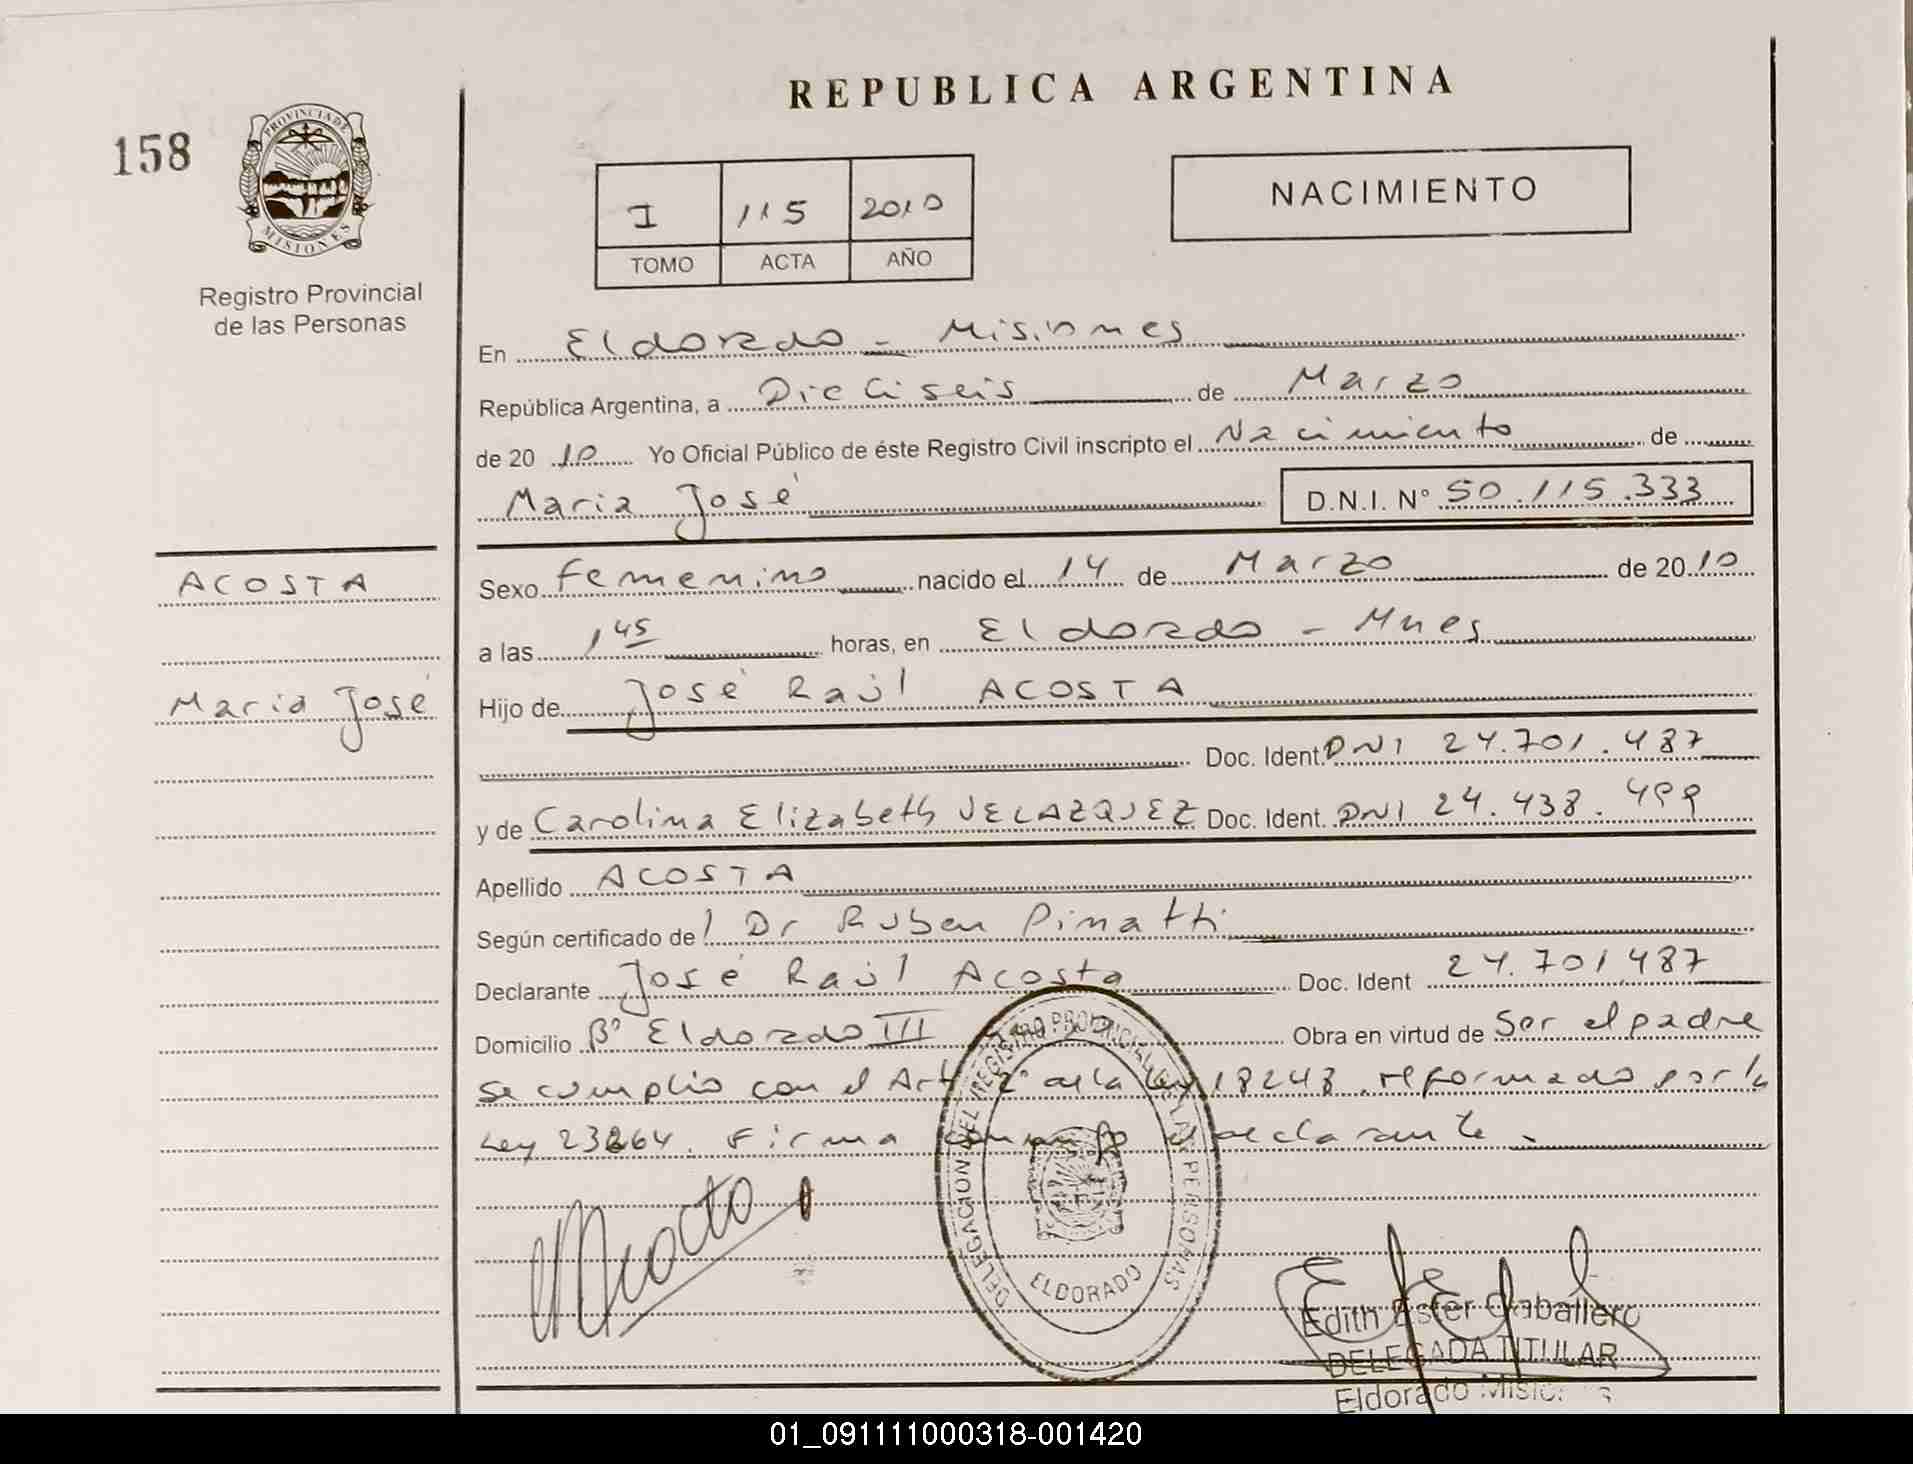 REPUBLICA ARGENTINA
158
PROVINCIA DE
MISIONES
Registro Provincial
de las Personas
I 115 2010
TOMO ACTA AÑO
NACIMIENTO
En Eldorado - Misiones
República Argentina, a Dieciseis de Marzo
de 20 10 Yo Oficial Público de éste Registro Civil inscripto el Nacimiento de
Maria José D.N.I. N° 50.115.333
ACOSTA
Maria José
Sexo Femenino nacido el 14 de Marzo de 20 10
a las 1 45 horas, en Eldorado - Mnes
Hijo de José Raúl ACOSTA
Doc. Ident. DNI 24.701.487
y de Carolina Elizabeth VELAZQUEZ Doc. Ident. DNI 24.438.499
Apellido ACOSTA
Según certificado de l Dr Ruben Pinatti
Declarante José Raúl Acosta Doc. Ident 24.701487
Domicilio B° Eldorado III Obra en virtud de Ser el padre
se cumplio con el Art 2° de la Ley 18248 reformado por la
Ley 23264. Firma el declarante.
DELEGACION DEL REGISTRO PROVINCIAL DE LAS PERSONAS
ELDORADO
Edith Ester Caballero
DELEGADA TITULAR
Eldorado
01_091111000318-001420